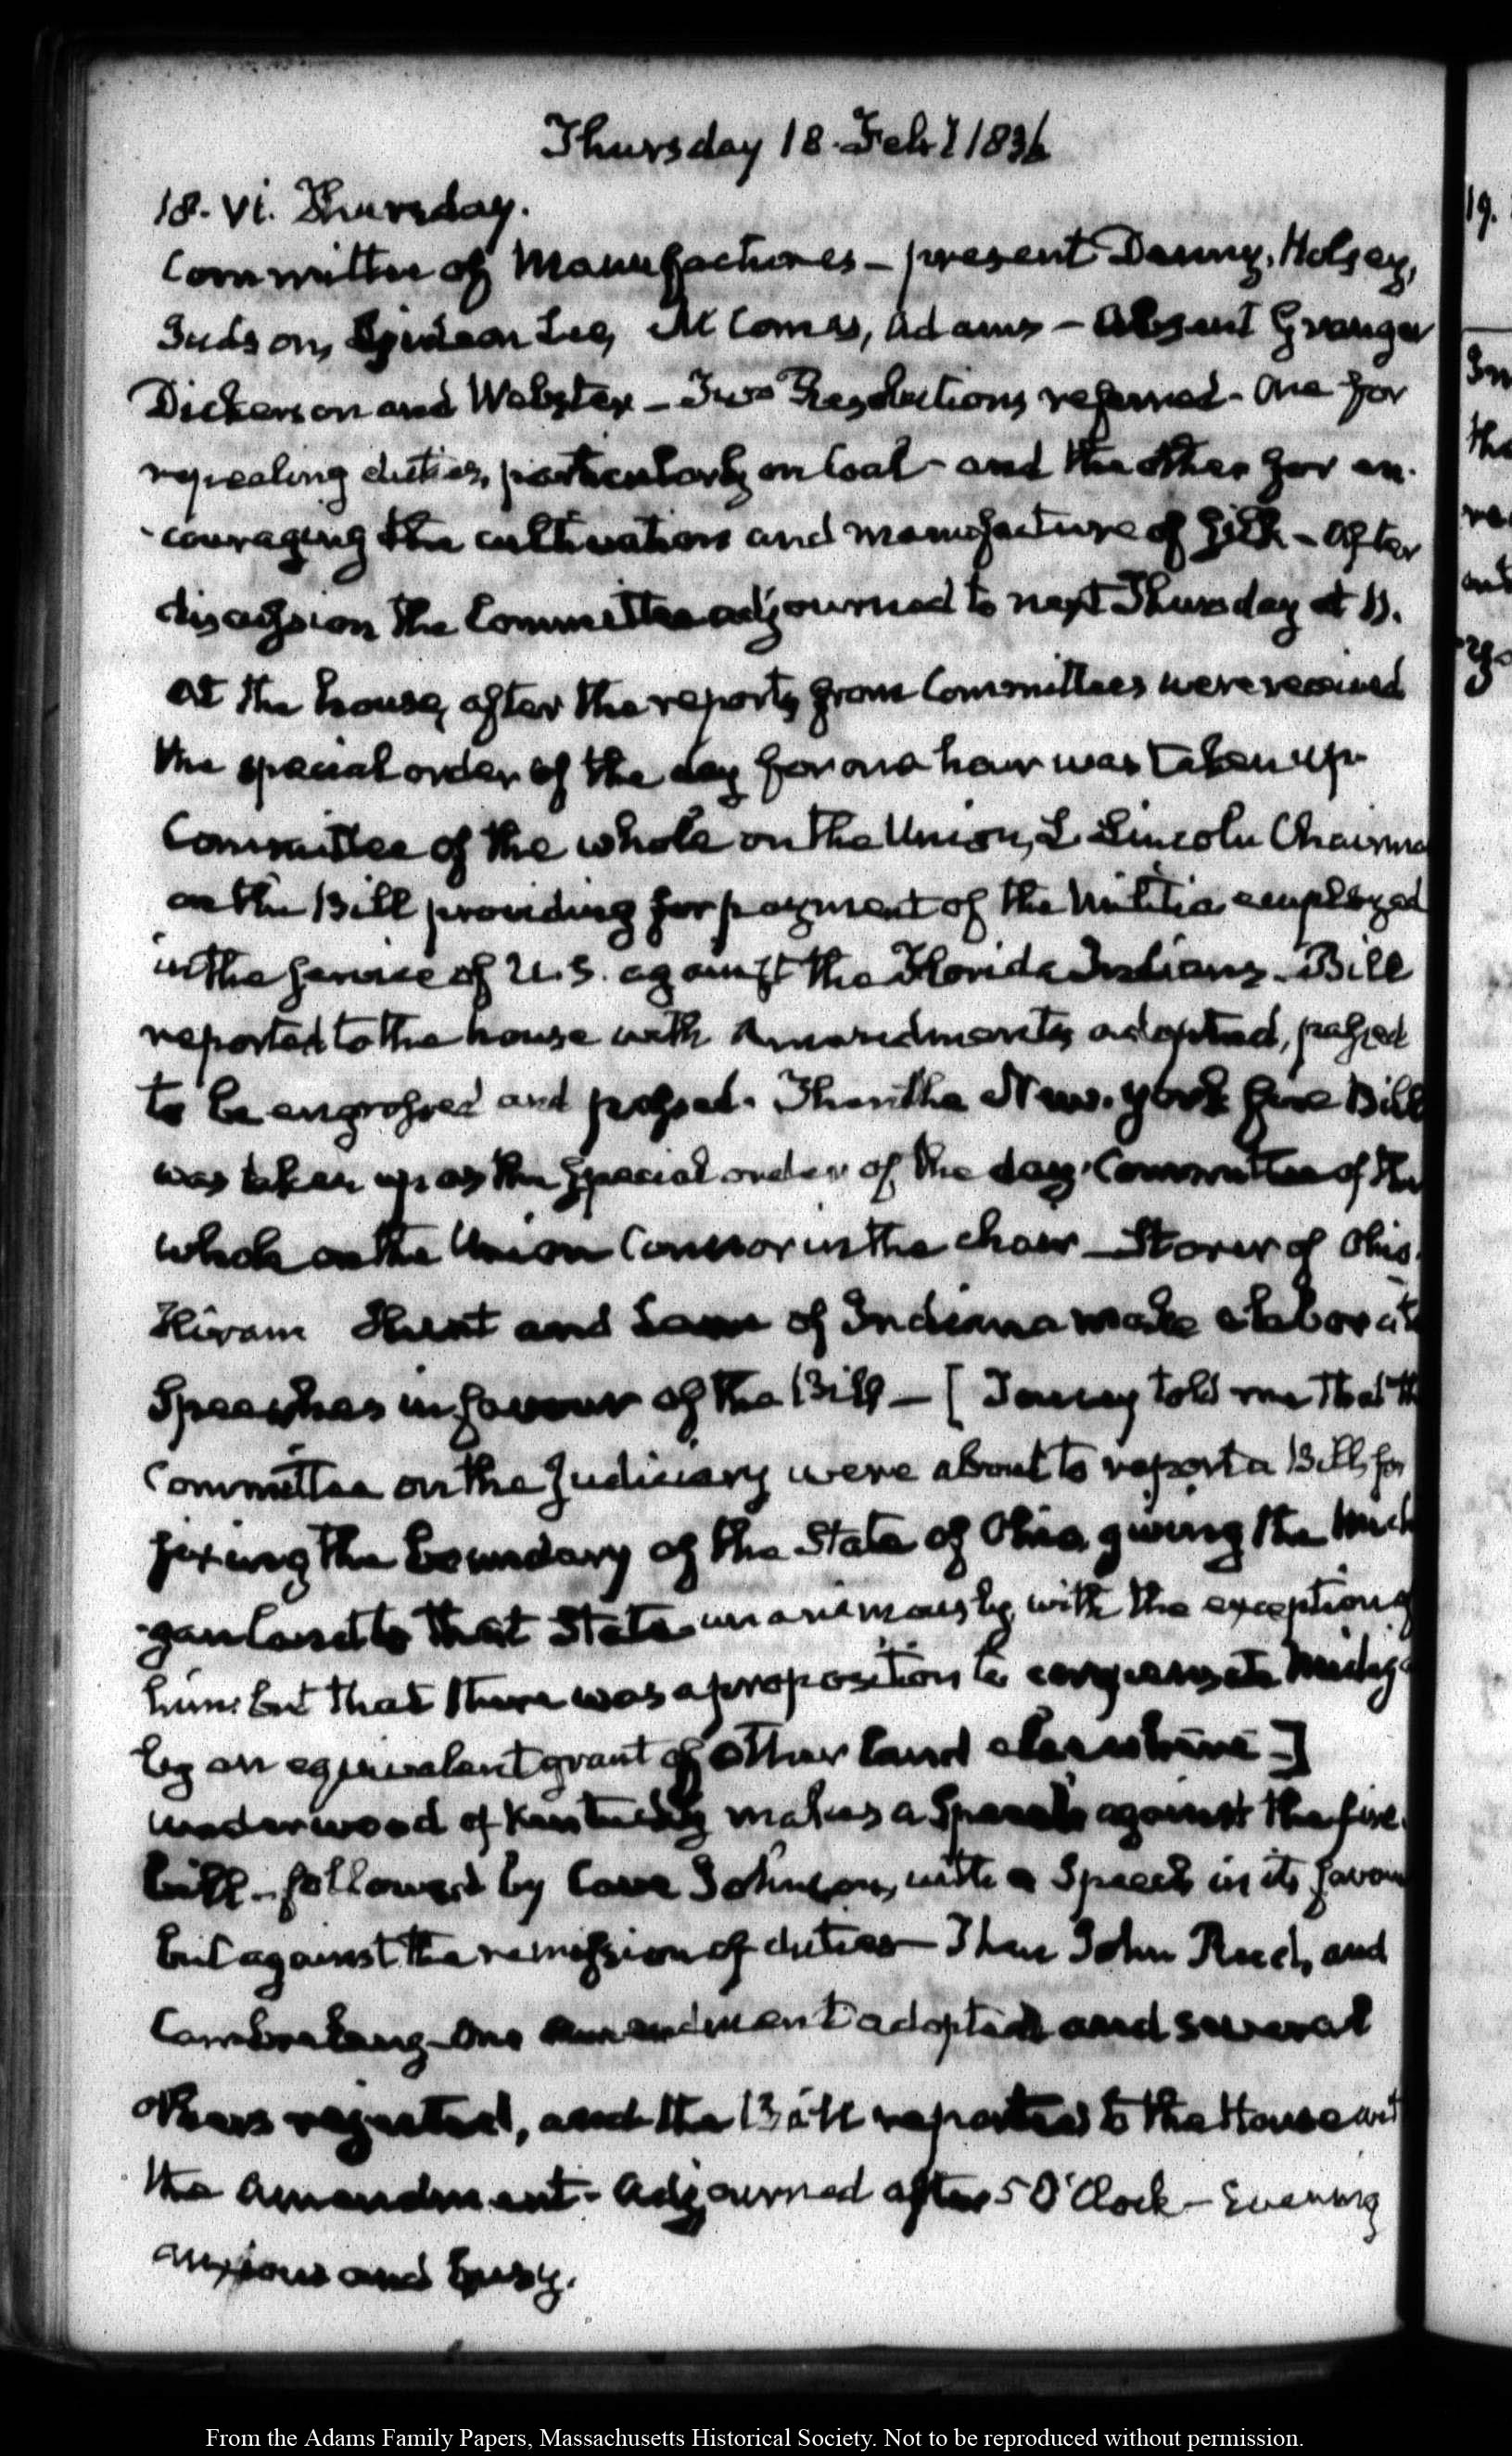 Thursday 18. Feby 1836
18. VI. Thursday.
Committee of Manufactures – present Denny, Holsey,
Judson, Gideon Lee, McComas, Adams – Absent Granger
Dickerson and Webster – Two Resolutions referred – One for
repealing duties, particularly on Coal – and the other for en-
-couraging the cultivation and manufacture of Silk – After
discussion the Committee adjourned to next Thursday at
At the house, after the reports from Committees were received
the special order of the day for one hour was taken up
Committee of the whole on the Union, L Lincoln Chairma
on the Bill providing for payment of the Militia employed
in the service of U.S. against the Florida Indians – Bill
reported to the house with Amendments adopted, passed
to be engrossed and passed. Then the New-York fire Bill
was taken up as the special order of the day. Committee of the
whole on the Union Connor in the chair – Storer of Ohio.
Hiram Hunt and Lane of Indiana make elaborate
Speeches in favour of the Bill – [ told me that th
Committee on the Judiciary were about to report a Bill, for
fixing the boundary of the State of Ohio, giving the Mich
-gan Land to that State unanimously, with the exception of
him: but that there was a proposition to compensate Michig
by an equivalent grant of other land elsewhere –]
Underwood of Kentucky makes a Speech against the fire
bill – followed by Cave Johnson, with a Speech in its favou
but against the remission of duties – Then John Reed, and
Cambreleng – One Amendment adopted and several
others rejected, and the Bill reported to the House with
the Amendment – Adjourned after 5 O'Clock – Evening
anxious and busy.
19.
In
the
re
and
From the Adams Family Papers, Massachusetts Historical Society. Not to be reproduced without permission.